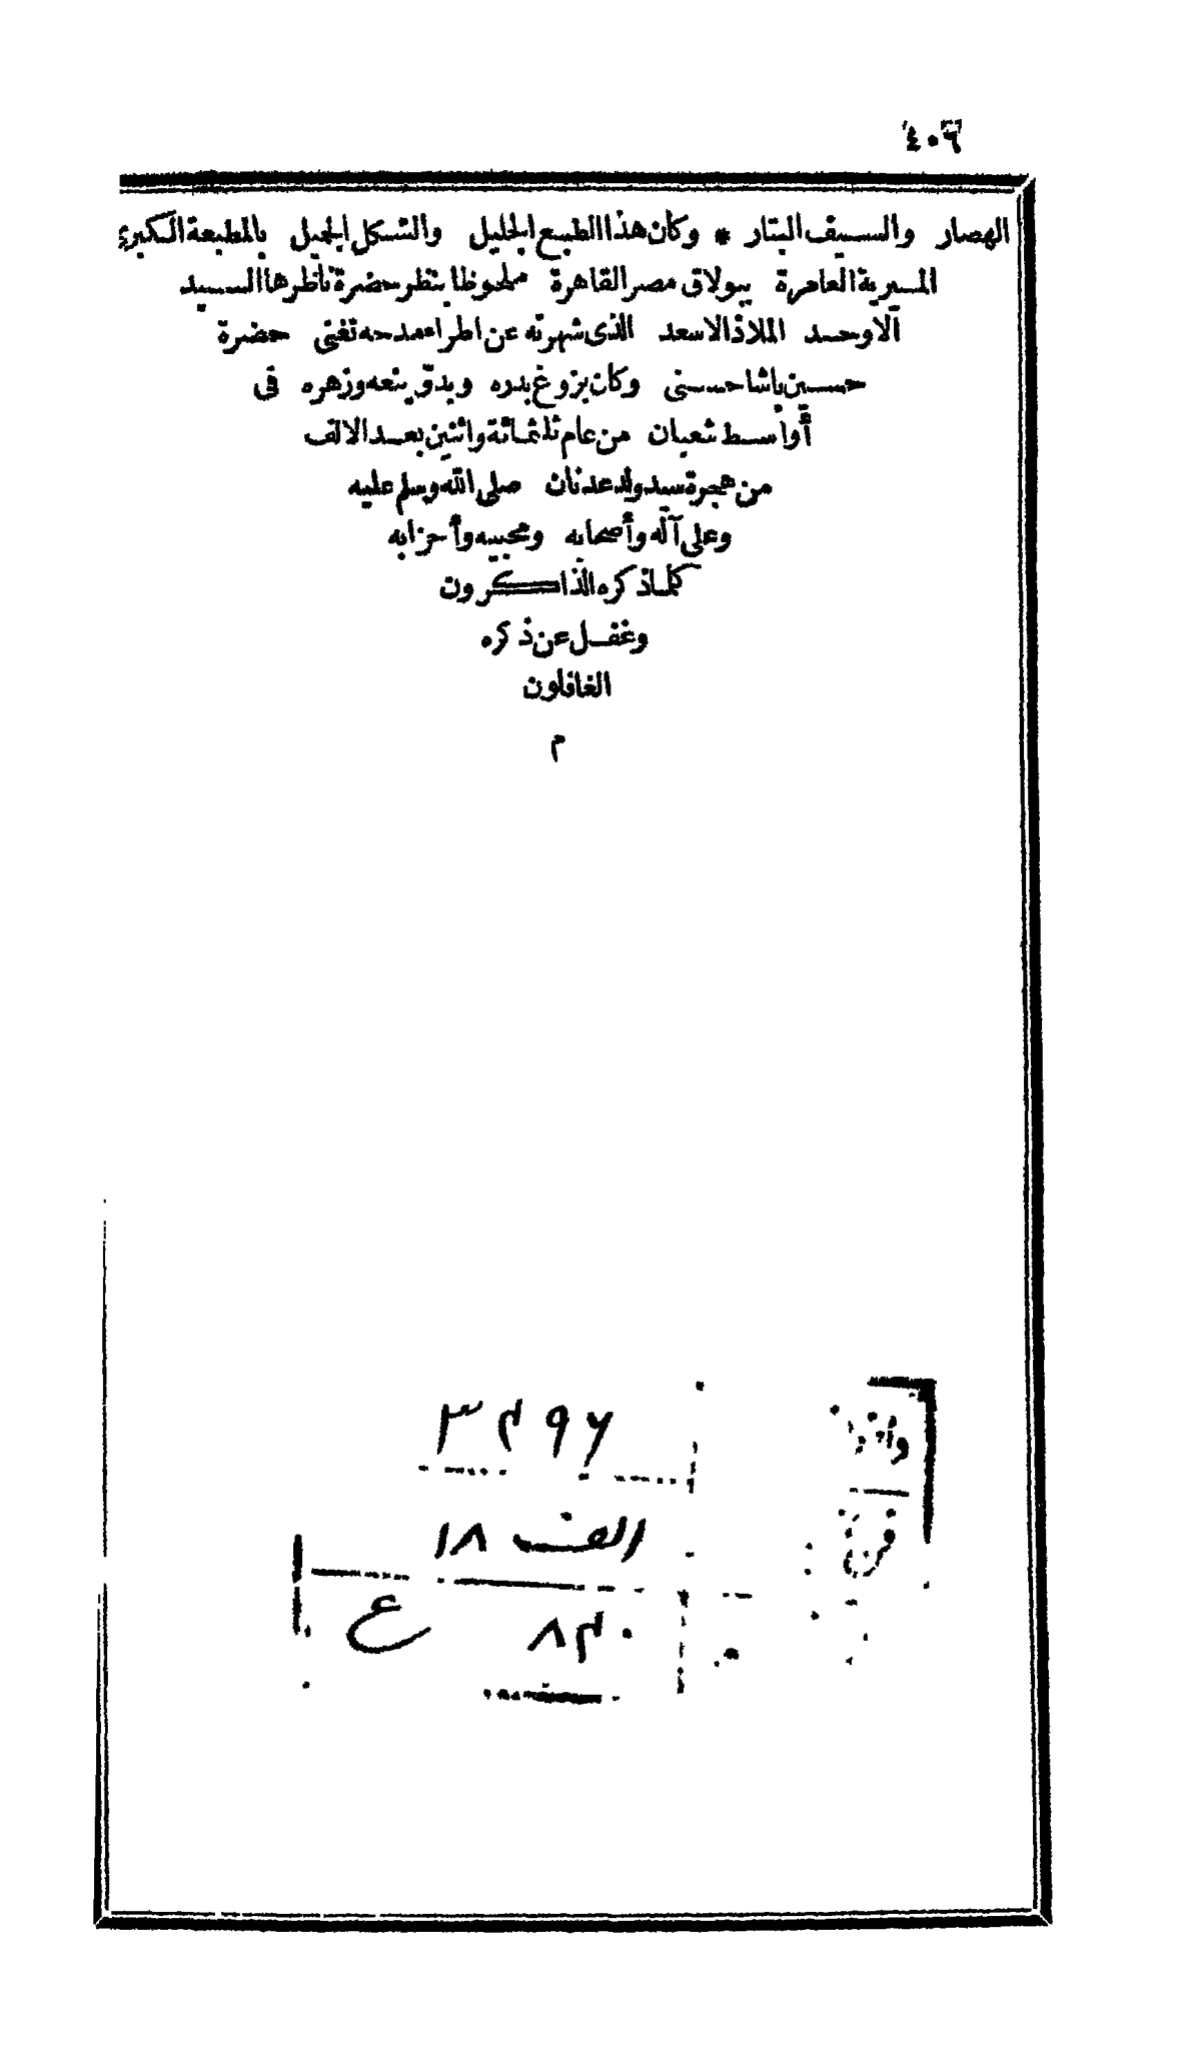 ٤٠٦
الهصار والسيف البتار * وكان هذا الطبع الجليل والشكل الجميل بالمطبعة الكبرى
الميرية العامرة ببولاق مصر القاهرة ملحوظا بنظر حضرة ناظرها السيد
الاوحد الملاذ الاسعد الذى شهرته عن اطراء مدحه تغنى حضرة
حسين باشا حسنى وكان بزوغ بدره وبدوّ ينعه وزهره فى
أواسط شعبان من عام ثلثمائة واثنين بعد الالف
من هجرة سيد ولد عدنان صلى الله وسلم عليه
وعلى آله وأصحابه ومحبيه وأحزابه
كلما ذكره الذاكرون
وغفل عن ذكره
الغافلون
م
٣٢٩٦
الف ١٨
٨٢٠ ع